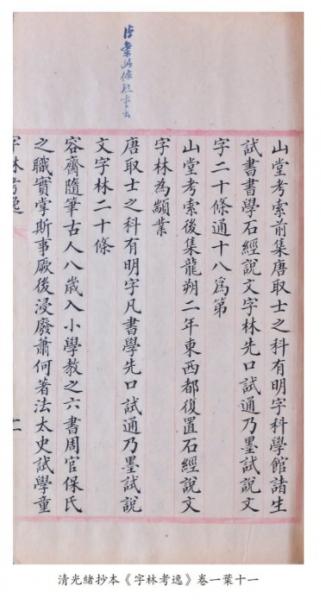 山堂考索前集唐取士之科有明字科學館諸生
試書書學石經說文字林先口試通乃墨試說文
字二十條通十八爲第
山堂考索後集龍朔二年東西都復置石經說文
字林為顓業
唐取士之科有明字凡書學先口試通乃墨試說
文字林二十條
容齋隨筆古人八歲入小學教之六書周官保氏
之職實掌斯事厥後浸廢蕭何著法太史試學童
字林考逸
十一
清光緒抄本《字林考逸》卷一葉十一